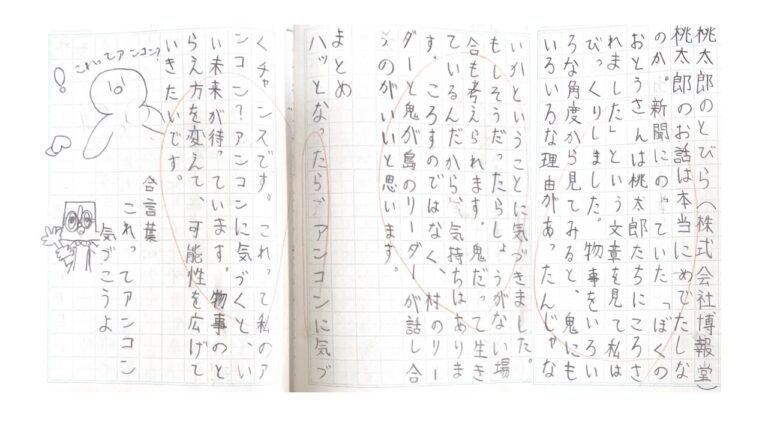 桃太郎のとびら（株式会社博報堂）
桃太郎のお話は本当にめでたしな
のか。新聞にのっていた「ぼくの
おとうさんは桃太郎たちにころさ
れました」という文章を見て私は
びっくりしました。物事をいろい
ろな角度から見てみると、鬼にも
いろいろな理由があったんじゃな
いかということに気づきました。
もしそうだったらしょうがない場
合も考えられます。鬼だって生き
ているんだから、気持ちはありま
す。ころすのではなく、村のリー
ダーと鬼が島のリーダーが話し合
うのがいいと思います。
まとめ
ハッとなったらアンコンに気づ
くチャンスです。これって私のア
ンコン？アンコンに気づくと、い
い未来が待っています。物事のと
らえ方を変えて、可能性を広げて
いきたいです。
合言葉
これってアンコン
気づこうよ
これってアンコン？
!